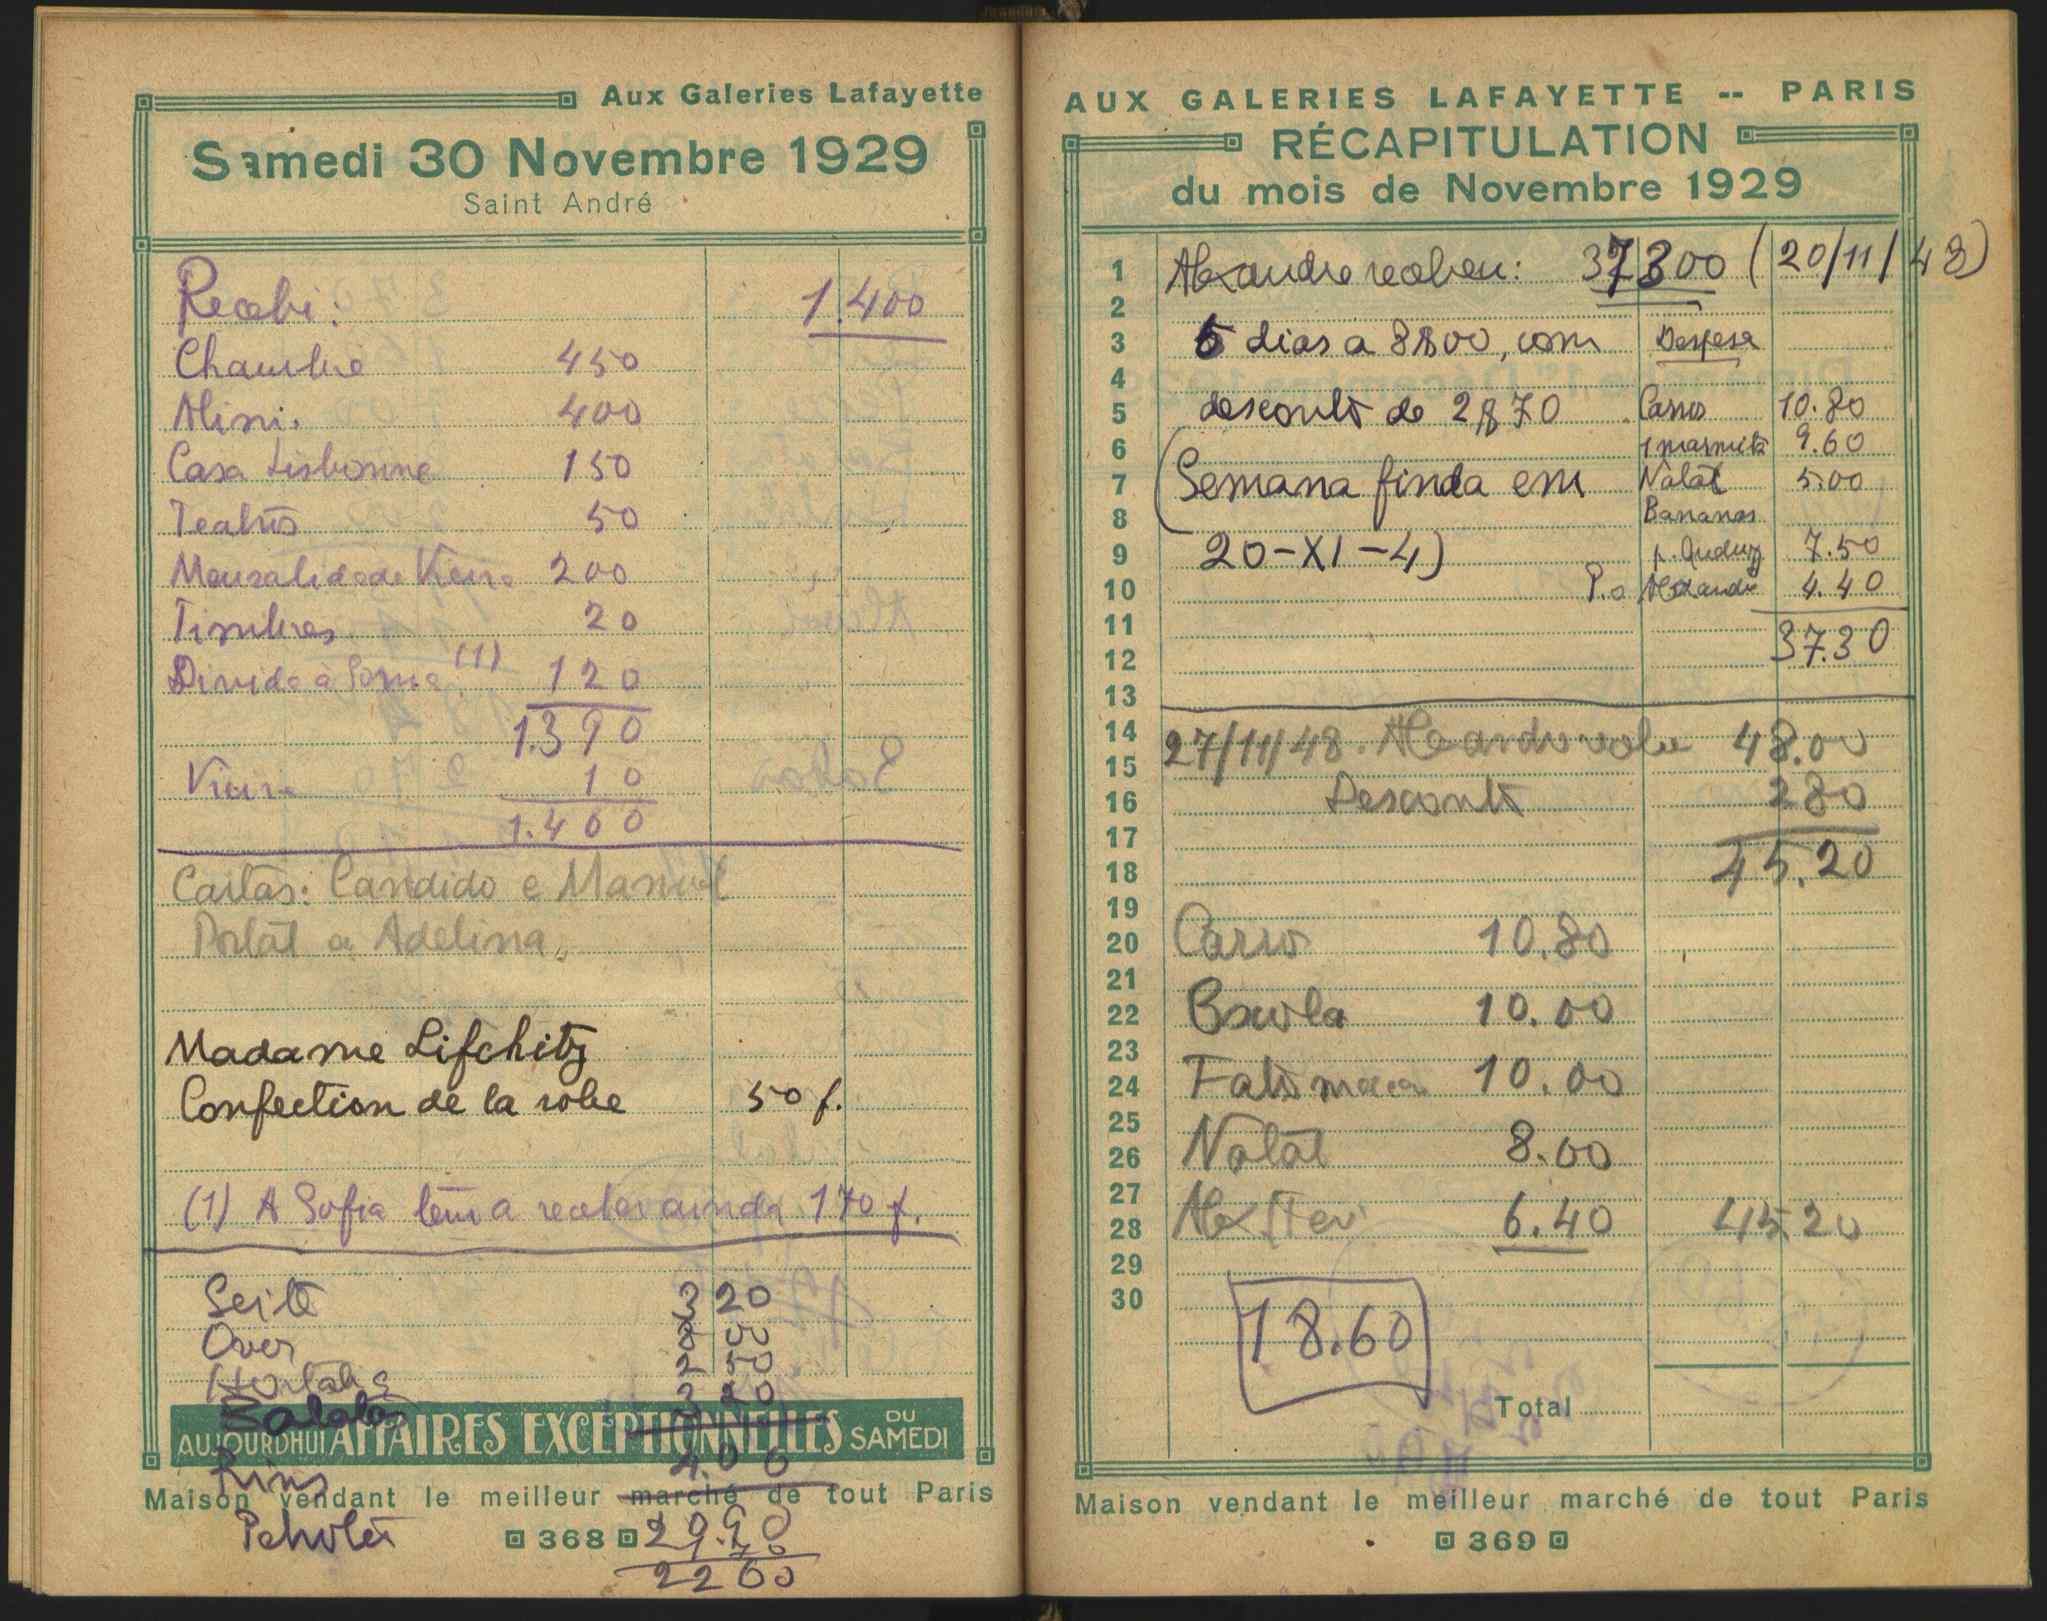 Aux Galeries Lafayette
Samedi 30 Novembre 1929
Saint André
Recebi: 1.400
Chambre 450
Mimi. 400
Casa Lisbonne 150
Teatros 50
Mensalidade Vieira 200
Timbres 20
Divida à (1) 120
1.390
Vieira 10
1.400
Cartas: Candido e Manuel
Postal a Adelina
Madame Lifchitz
Confection de la robe 50 f.
(1) A Sofia tem a receber ainda 170 f.
Seite 3 20
Over 00
Hortaliça 2 50
Batatas 3 20
AUJOURD'HUI AFFAIRES EXCEPTIONNELLES DU SAMEDI
Rins 4.00
Maison vendant le meilleur marché de tout Paris
368
2260
AUX GALERIES LAFAYETTE -- PARIS
RÉCAPITULATION
du mois de Novembre 1929
1 Alexandre recebeu: 37300 (20/11/48)
2
3 6 dias a 8$00, com Despesa
4
5 desconto de 2$70 Carros 10.80
6 1 marmita 9.60
7 (Semana finda em Natal 5.00
8 Bananas
9 20-XI-4) 7.50
10 P.a Alexandre 4.40
11
37.30
12
13
14 27/11/48. Alexandre recebeu 48.00
15
16 Desconto 280
17
18 45.20
19
20 Carro 10.80
21
22 Escola 10.00
23
24 Fato 10.00
25
26 Natal 8.00
27
28 6.40 45 20
29
30
18.60
Total
Maison vendant le meilleur marché de tout Paris
369